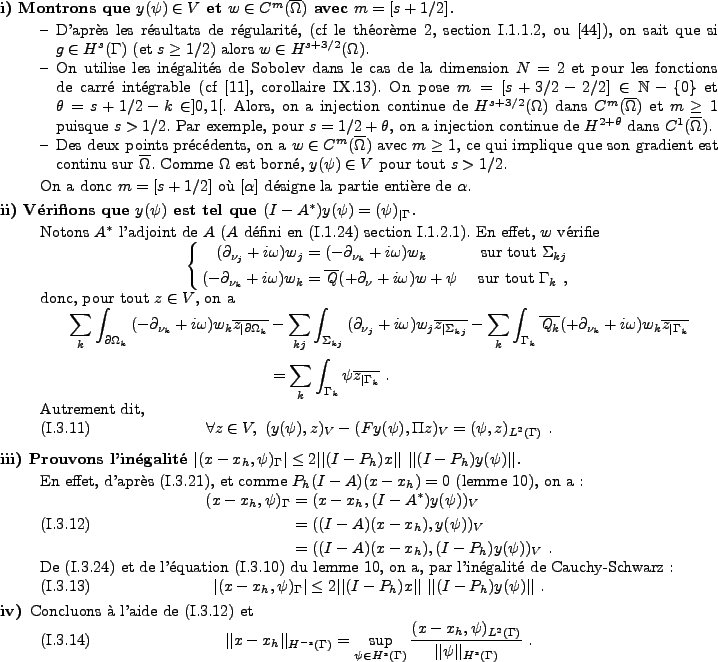 i) Montrons que $y(\psi) \in V$ et $w \in C^m(\overline{\Omega})$ avec $m = [s + 1/2]$.
– D'après les résultats de régularité, (cf le théorème 2, section I.1.1.2, ou [44]), on sait que si
$g \in H^s(\Gamma)$ (et $s \geq 1/2$) alors $w \in H^{s+3/2}(\Omega)$.
– On utilise les inégalités de Sobolev dans le cas de la dimension $N = 2$ et pour les fonctions
de carré intégrable (cf [11], corollaire IX.13). On pose $m = [s + 3/2 - 2/2] \in \mathbb{N} - \{0\}$ et
$\theta = s + 1/2 - k \in ]0, 1[$. Alors, on a injection continue de $H^{s+3/2}(\Omega)$ dans $C^m(\overline{\Omega})$ et $m \geq 1$
puisque $s > 1/2$. Par exemple, pour $s = 1/2 + \theta$, on a injection continue de $H^{2+\theta}$ dans $C^1(\overline{\overline{\Omega}})$.
– Des deux points précédents, on a $w \in C^m(\overline{\Omega})$ avec $m \geq 1$, ce qui implique que son gradient est
continu sur $\overline{\Omega}$. Comme $\Omega$ est borné, $y(\psi) \in V$ pour tout $s > 1/2$.
On a donc $m = [s + 1/2]$ où $[\alpha]$ désigne la partie entière de $\alpha$.
ii) Vérifions que $y(\psi)$ est tel que $(I - A^*)y(\psi) = (\psi)_{|\Gamma}$.
Notons $A^*$ l'adjoint de $A$ ($A$ défini en (I.1.24) section I.1.2.1). En effet, $w$ vérifie
$\begin{cases} (\partial_{\nu_j} + i\omega)w_j = (-\partial_{\nu_k} + i\omega)w_k & \text{sur tout } \Sigma_{kj} \\ (-\partial_{\nu_k} + i\omega)w_k = \overline{Q}(+\partial_\nu + i\omega)w + \psi & \text{sur tout } \Gamma_k \text{ ,} \end{cases}$
donc, pour tout $z \in V$, on a
$\sum_k \int_{\partial\Omega_k} (-\partial_{\nu_k} + i\omega)w_k \overline{z_{|\partial\Omega_k}} - \sum_{kj} \int_{\Sigma_{kj}} (\partial_{\nu_j} + i\omega)w_j \overline{z_{|\Sigma_{kj}}} - \sum_k \int_{\Gamma_k} \overline{Q_k}(+\partial_{\nu_k} + i\omega)w_k \overline{z_{|\Gamma_k}}$
$= \sum_k \int_{\Gamma_k} \psi \overline{z_{|\Gamma_k}}$ .
Autrement dit,
(I.3.11) $\forall z \in V, \ (y(\psi), z)_V - (Fy(\psi), \Pi z)_V = (\psi, z)_{L^2(\Gamma)}$ .
iii) Prouvons l'inégalité $|(x - x_h, \psi)_\Gamma| \leq 2||(I - P_h)x|| \ ||(I - P_h)y(\psi)||$.
En effet, d'après (I.3.21), et comme $P_h(I - A)(x - x_h) = 0$ (lemme 10), on a :
$(x - x_h, \psi)_\Gamma = (x - x_h, (I - A^*)y(\psi))_V$
(I.3.12) $= ((I - A)(x - x_h), y(\psi))_V$
$= ((I - A)(x - x_h), (I - P_h)y(\psi))_V$ .
De (I.3.24) et de l'équation (I.3.10) du lemme 10, on a, par l'inégalité de Cauchy-Schwarz :
(I.3.13) $|(x - x_h, \psi)_\Gamma| \leq 2||(I - P_h)x|| \ ||(I - P_h)y(\psi)||$ .
iv) Concluons à l'aide de (I.3.12) et
(I.3.14) $||x - x_h||_{H^{-s}(\Gamma)} = \sup_{\psi \in H^s(\Gamma)} \frac{(x - x_h, \psi)_{L^2(\Gamma)}}{||\psi||_{H^s(\Gamma)}}$ .